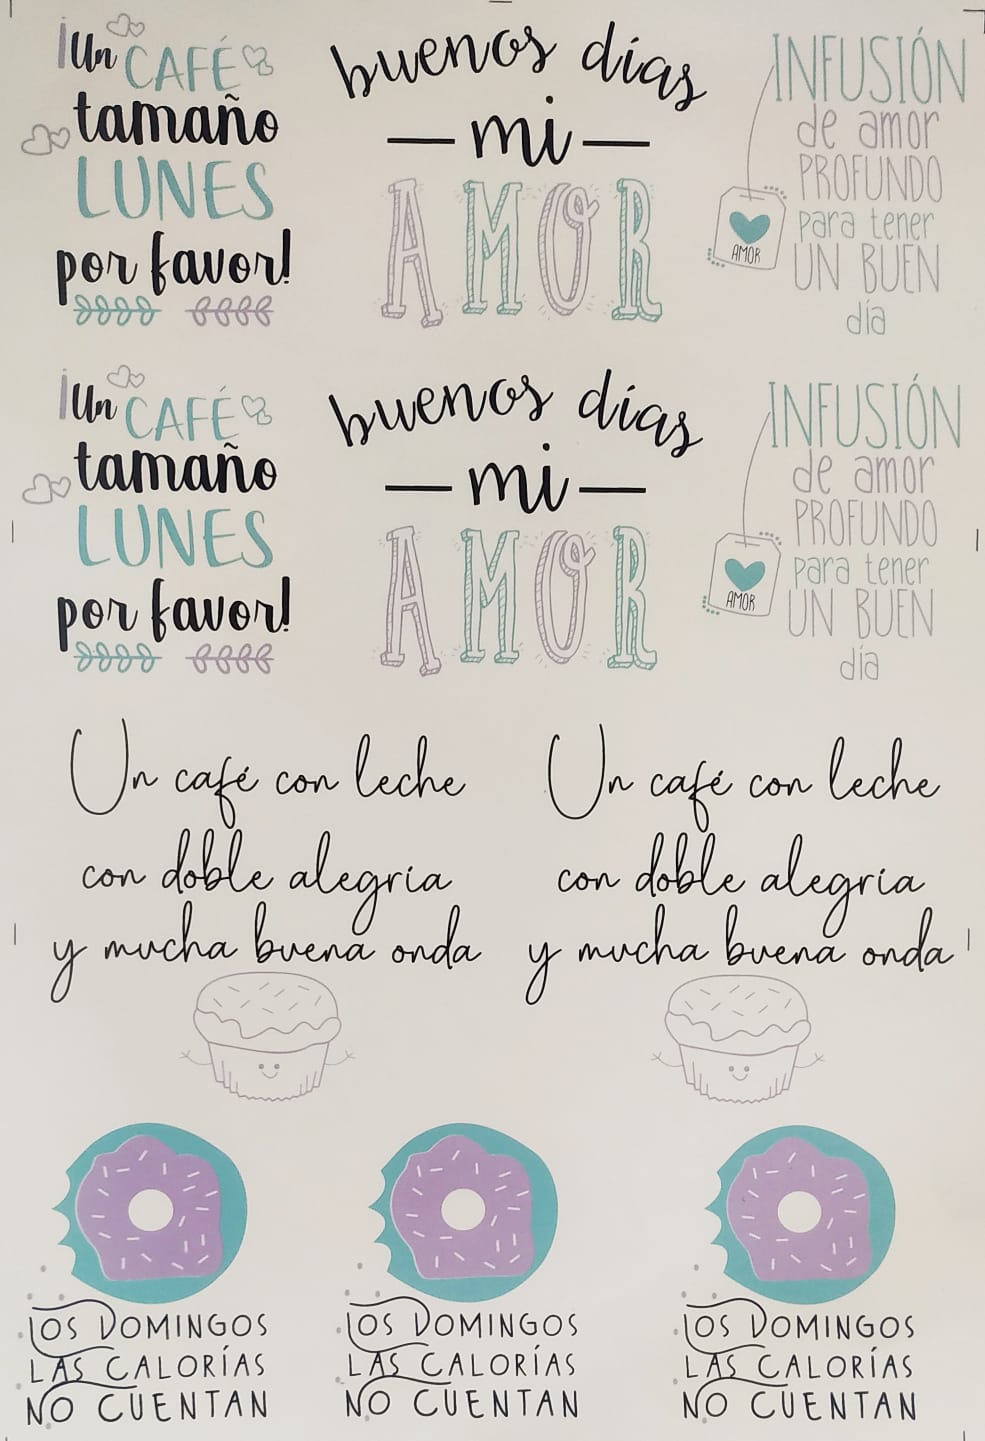 ¡Un CAFÉ
tamaño
LUNES
por favor!
buenos días
mi
AMOR
INFUSIÓN
de amor
PROFUNDO
para tener
UN BUEN
día
AMOR
¡Un CAFÉ
tamaño
LUNES
por favor!
buenos días
mi
AMOR
INFUSIÓN
de amor
PROFUNDO
para tener
UN BUEN
día
AMOR
Un café con leche
con doble alegría
y mucha buena onda
Un café con leche
con doble alegría
y mucha buena onda
LOS DOMINGOS
LAS CALORÍAS
NO CUENTAN
LOS DOMINGOS
LAS CALORÍAS
NO CUENTAN
LOS DOMINGOS
LAS CALORÍAS
NO CUENTAN